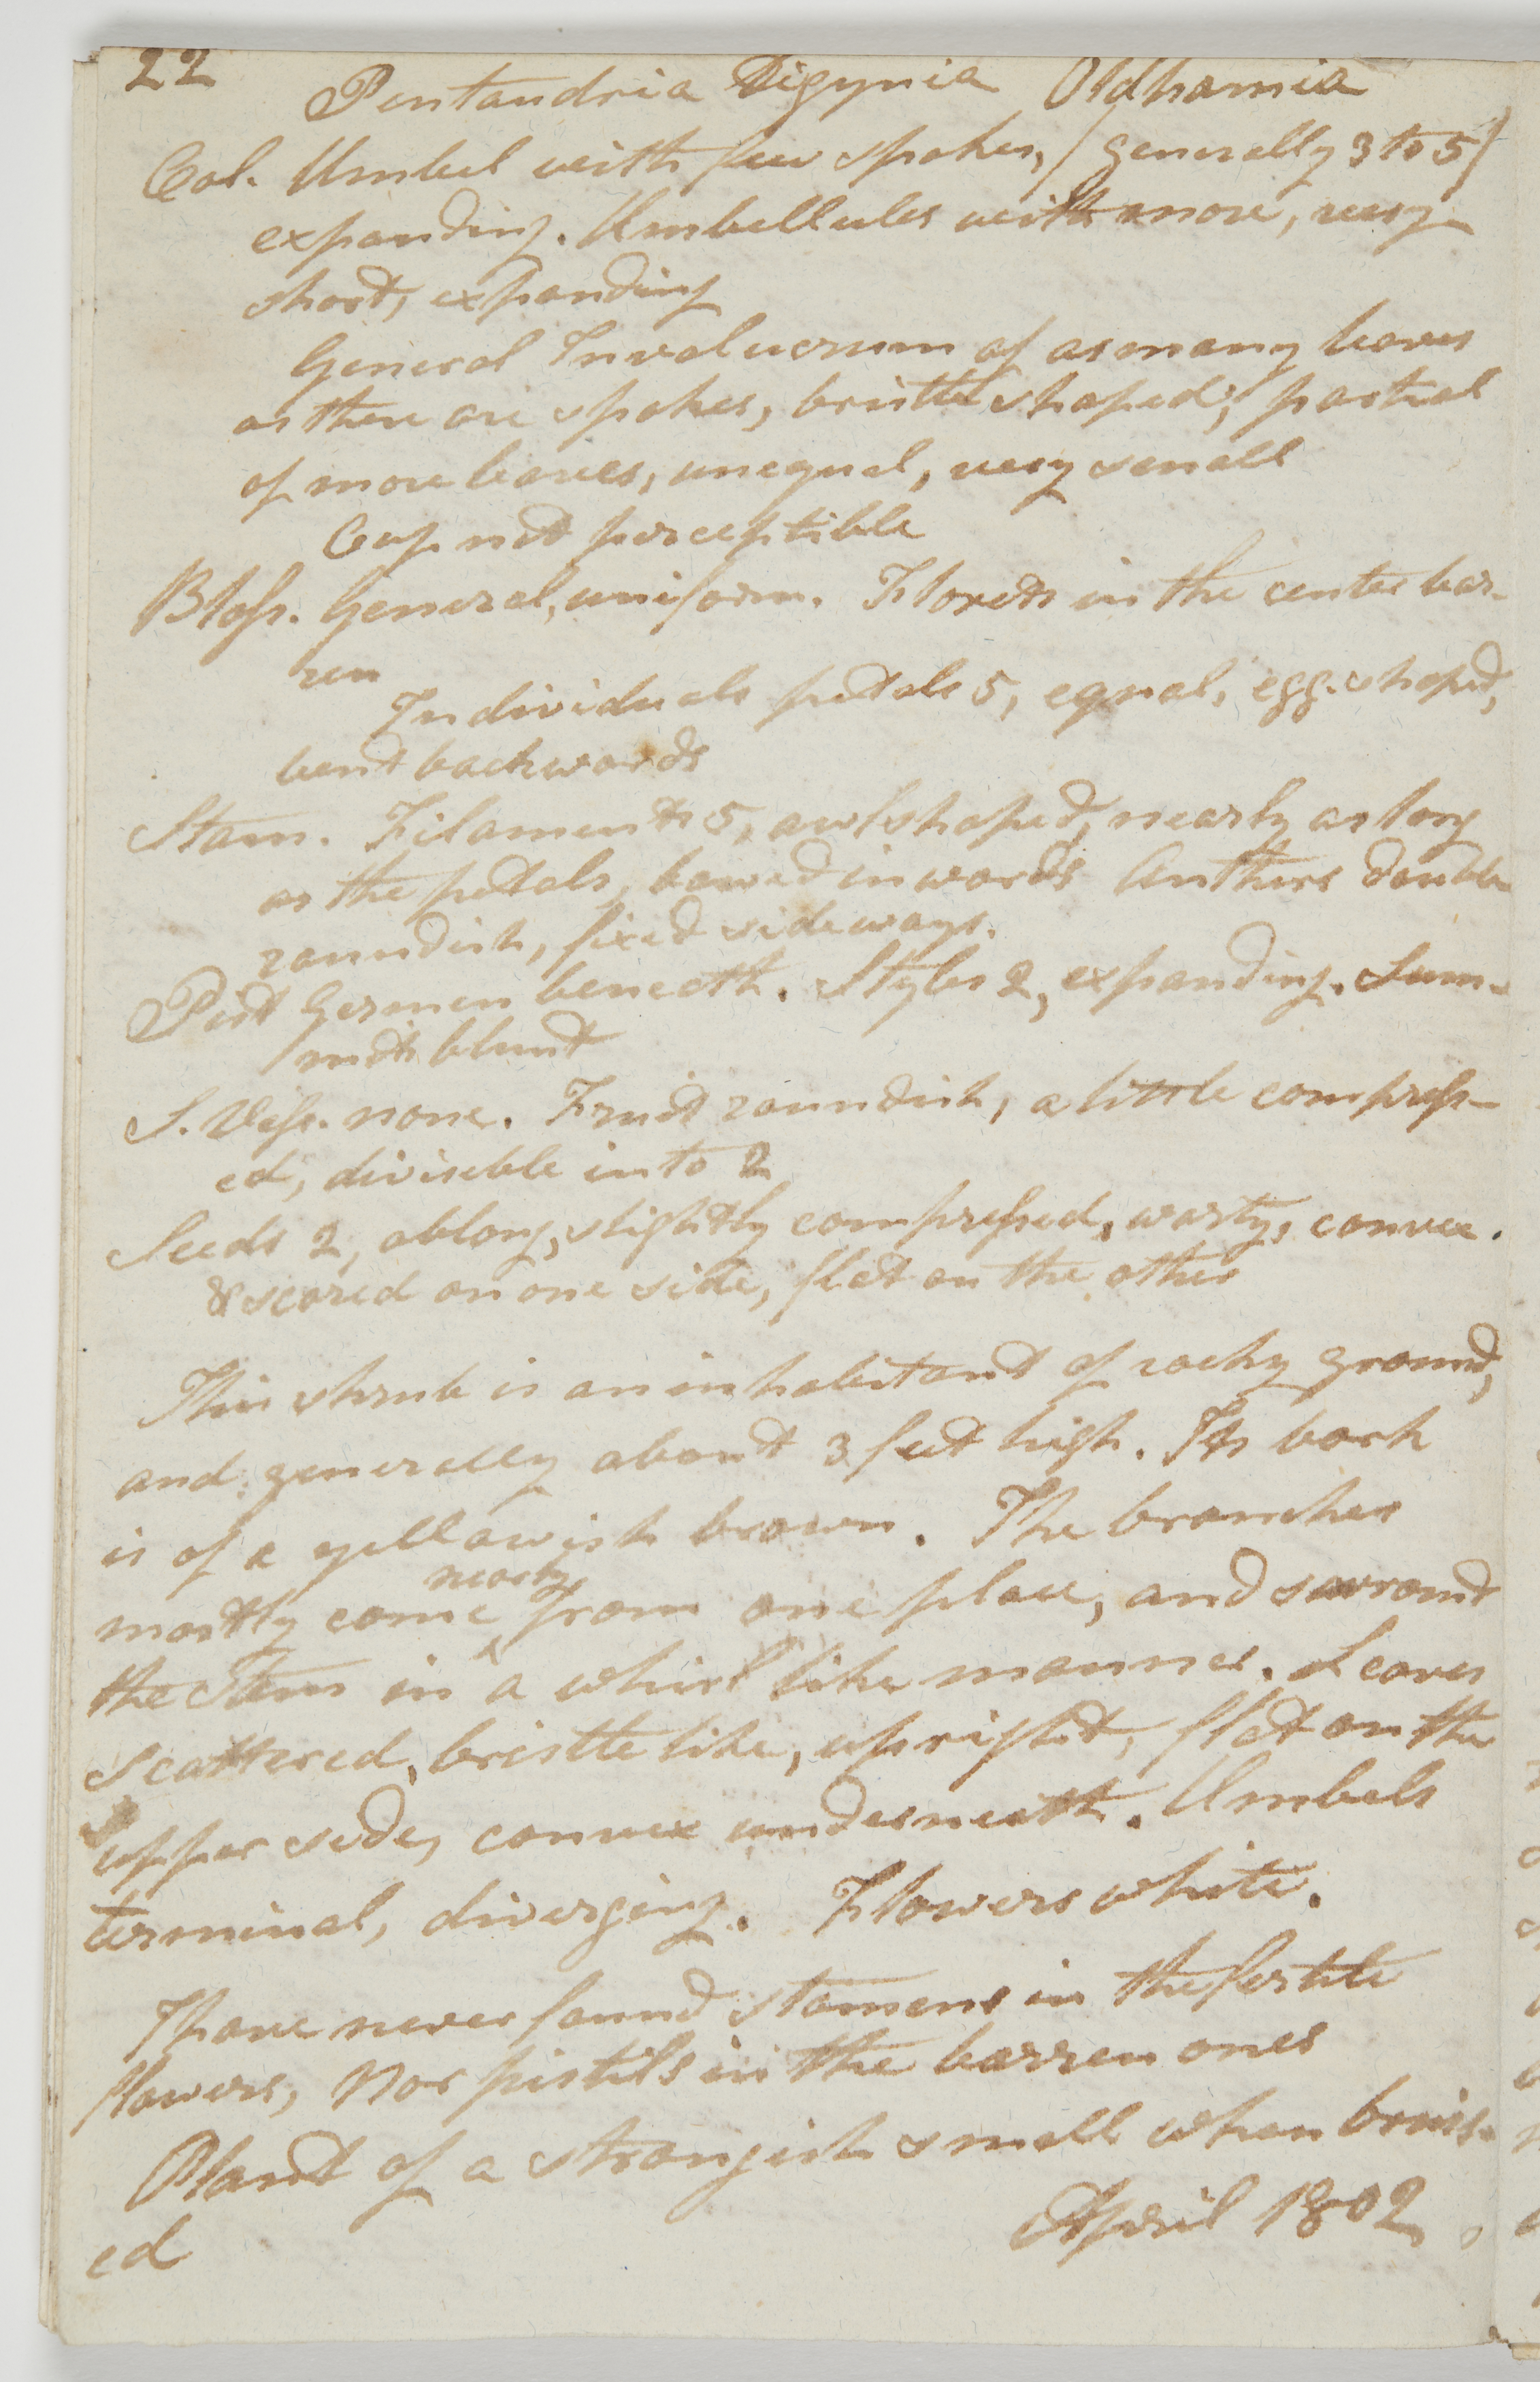 22
Pentandria Digynia Oldhamia
Cal. Umbel with few spokes, (generally 3 to 5)
expanding. Umbellules with more, very
short, expanding
General Involucrum of as many leaves
as there are spokes, bristle shaped; partial
of more leaves, unequal, very small
Cup not perceptible
Bloss. General, uniform. Florets in the center bar-
ren
Individuals petals 5, equal, egg-shaped,
bent backwards
Stam. Filaments 5, awlshaped, nearly as long
as the petals, bowed inwards Anthers double
roundish, fixed sideways.
Pist Germen beneath. Styles 2, expanding. Sum-
mits blunt
S. Vess. none. Fruit roundish, a little compress-
ed, diviseble into 2
Seeds 2, oblong, slightly compressed, warty, convex.
& scored on one side, flat on the other
This shrub is an inhabitant of rocky ground,
and generally about 3 feet high. Its bark
is of a yellowish brown. The branches
nearly
mostly come ^ from one place, and surround
the Stem in a whirl like manner. Leaves
scattered, bristle like, upright, flat on the
upper side, convex underneath. Umbels
terminal, diverging. Flowers white.
I have never found stamens in the fertile
flowers, Nor pistils in the barren ones
Plant of a strongish smell when bruis-
ed
April 1802